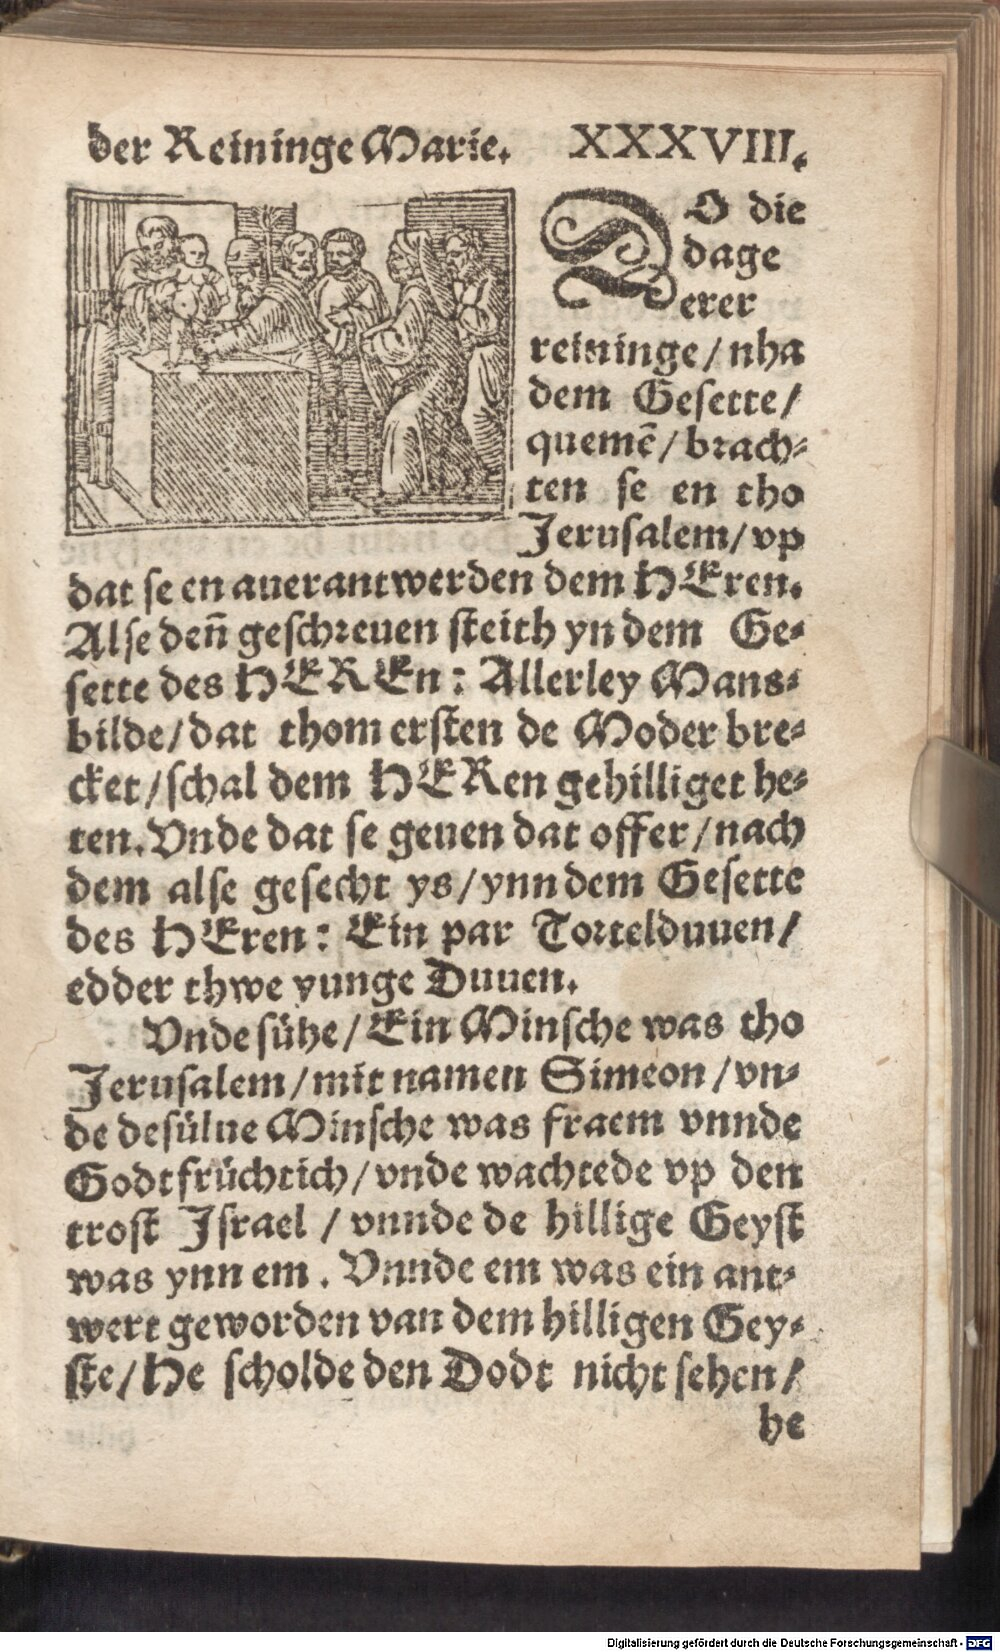 der Reininge Marie. XXXVIII.
DO die
dage
erer
reininge / nha
dem Gesette /
quemē / brach⸗
ten se en tho
Jerusalem / vp
dat se en auerantwerden dem HEren.
Alse deñ geschreuen steith yn dem Ge⸗
sette des HEREn: Allerley Mans⸗
bilde / dat thom ersten de Moder bre⸗
cket / schal dem HERen gehilliget he⸗
ten. Vnde dat se geuen dat offer / nach
dem alse gesecht ys / ynn dem Gesette
des HEren: Ein par Tortelduuen /
edder thwe yunge Duuen.
Vnde sühe / Ein Minsche was tho
Jerusalem / mit namen Simeon / vn⸗
de desülue Minsche was fraem vnnde
Godtfrüchtich / vnde wachtede vp den
trost Israel / vnnde de hillige Geyst
was ynn em. Vnnde em was ein ant⸗
wert geworden van dem hilligen Gey⸗
ste / He scholde den Dodt nicht sehen /
he
Digitalisierung gefördert durch die Deutsche Forschungsgemeinschaft - DFG